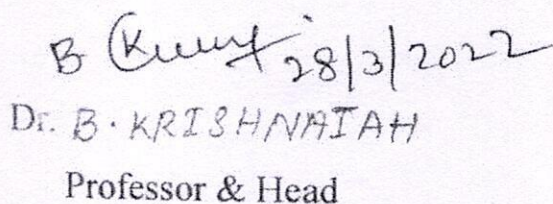 B 28/3/2022
Dr. B. KRISHNAIAH
Professor & Head